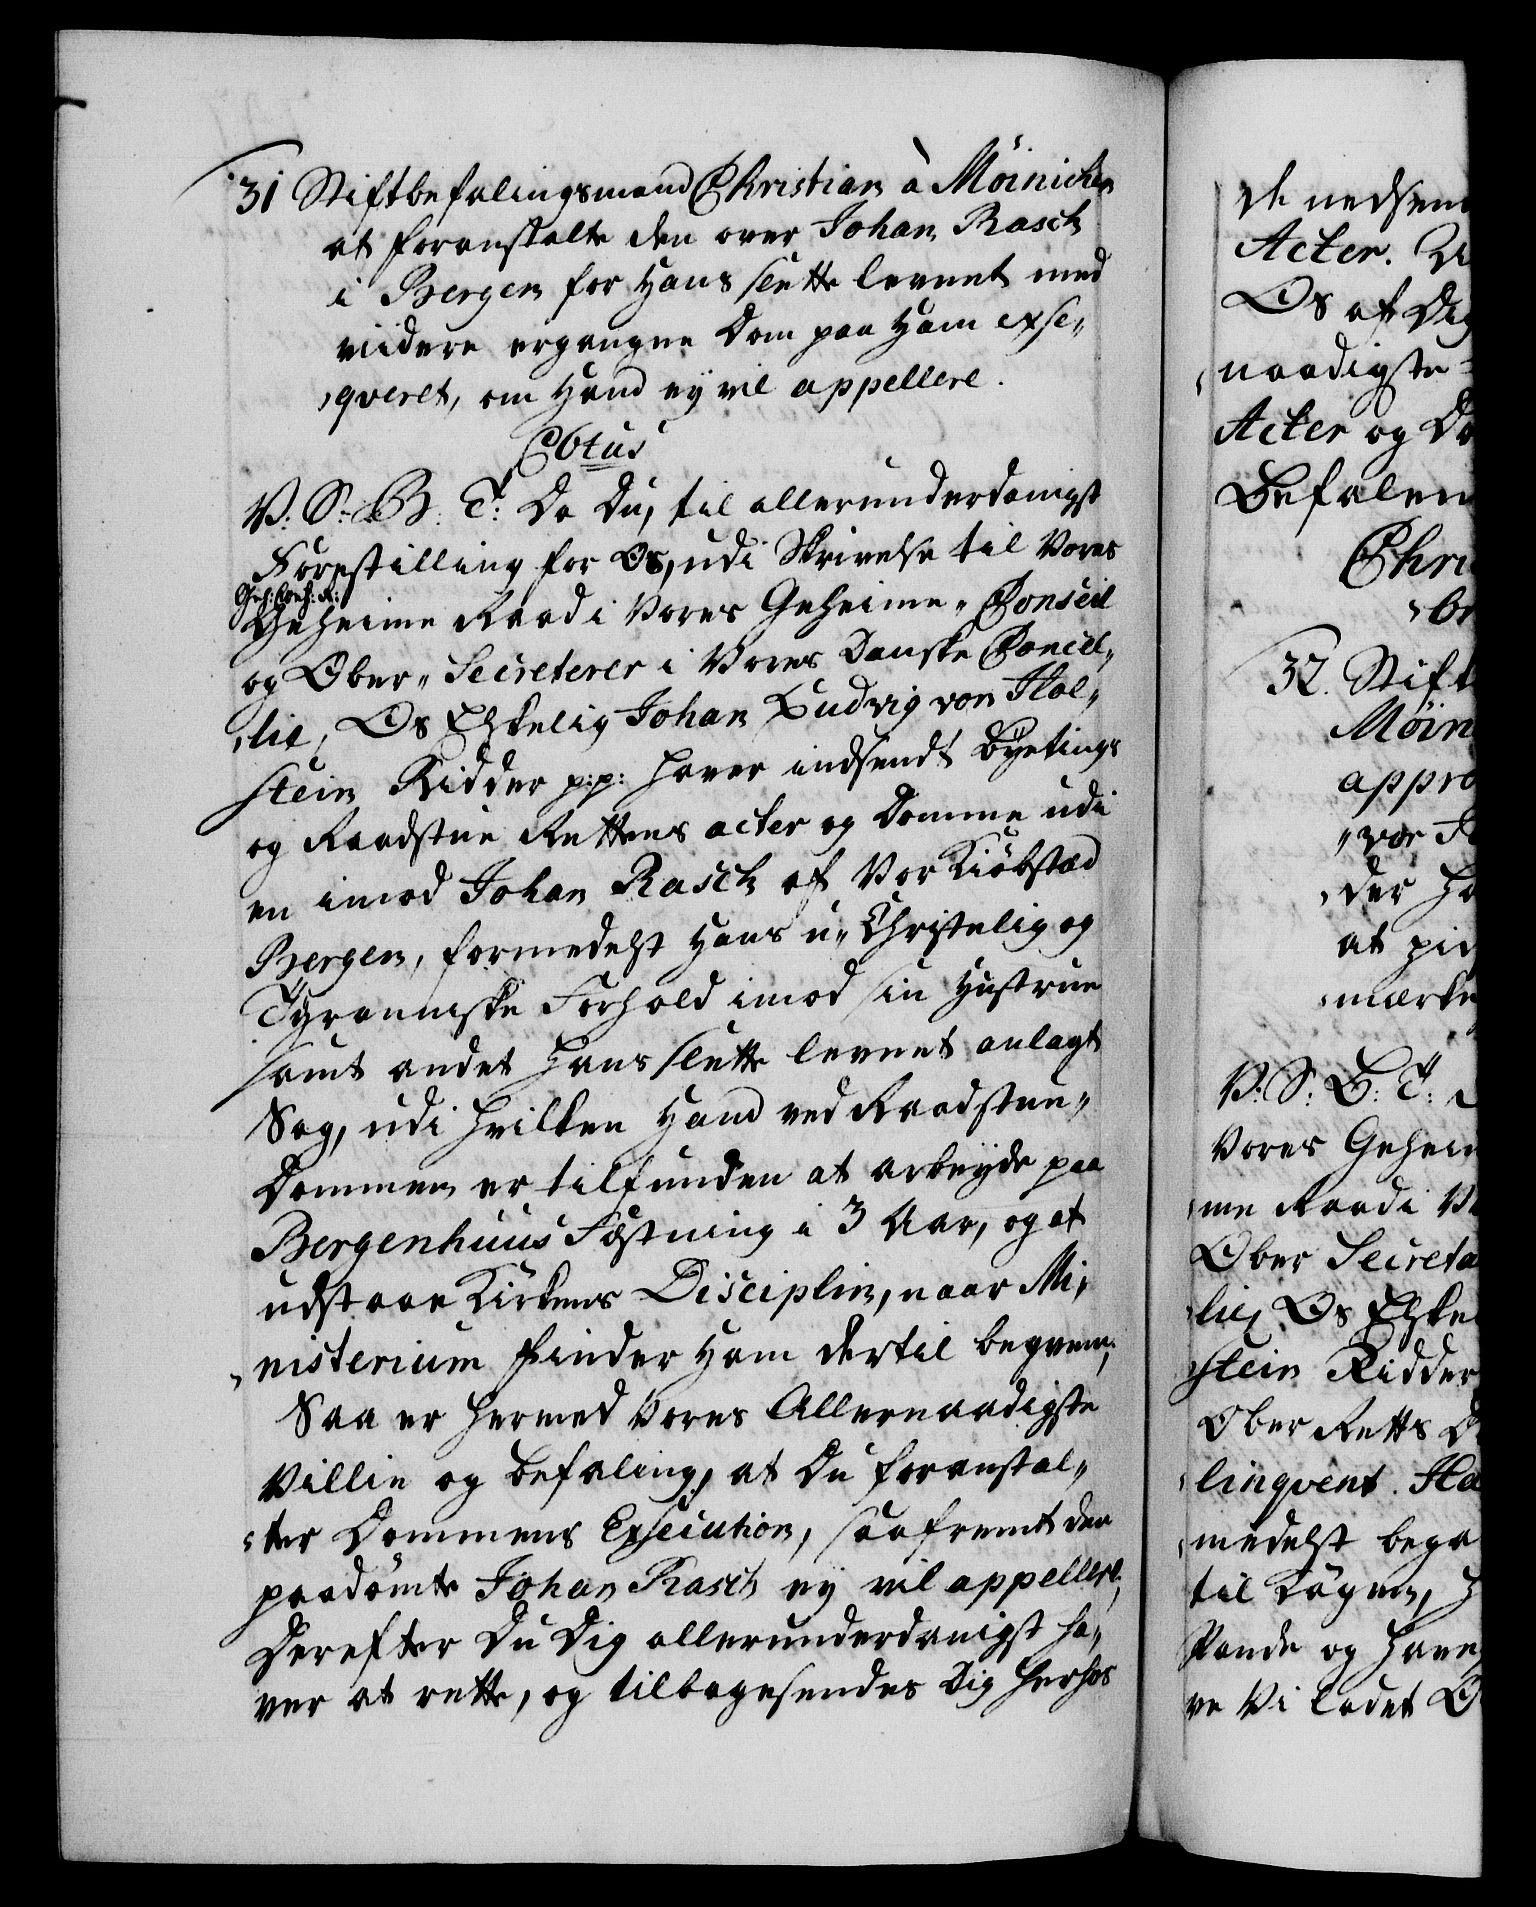 31 Stiftbefalingsmand Christian à Möinichen
at foranstalte den over Johan Rasch
i Bergen for Hans slette levnet med
viidere ergangne Dom paa Ham exse„
„qveret, om Hand ey vil appellere.
V: S: B: T: Da Du, til allerunderdanigst
Forestilling for Os, udi Skrivelse til Vores
Geh: Conf: R:
Geheime Raad i Vores Geheime„ Conseil
og Ober„ Secreterer i Vores Danske Cancel„
„lie, Os Elskelig Johan Ludvig von Hol„
stein Ridder p:p: haver indsendt Byetings
og Raadstue Rettens acter og Domme udi
en imod Johan Rasch af Vor Kiöbstæd
Bergen, formedelst Hans u„ Christelig og
Tyranniske Forhold imod sin Hustrue
samt andet Hans slette levnet anlagt
Sag, udi hvilken Hand ved Raadstue„
Dommen er tilfunden at arbeyde paa
Bergenhuus Fæstning i 3 Aar, og at
udstaae Kirkens Disciplin, naar Mi„
„nisterium finder Ham dertil begvem;
Saa er hermed Vores Allernaadigste
Villie og befaling, at Du foranstal„
„ter Dommens Exsecution, saafremt den
paadömte Johan Rasch ey vil appellere,
Derefter Du Dig allerunderdanigst ha„
ver at rette, og tilbagesendes Dig herhos
de nedsen
Acter.
Os af Dig
naadigste
Acter og Do
Befalen
Chri
32. Stift
Möin
appro
der ha
at
mærke
V: S: B: T:
Vores Gehei
me Raad i V
Ober Secreta
lie, Os Elske
stein Ridder
Ober Retts D
linqvent. Ha
medelst bega
til
Pande og have
ve Vi ladet O